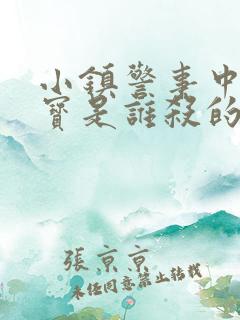 小鎮警事中
寶是誰殺的
張京京
未經同意禁止轉載